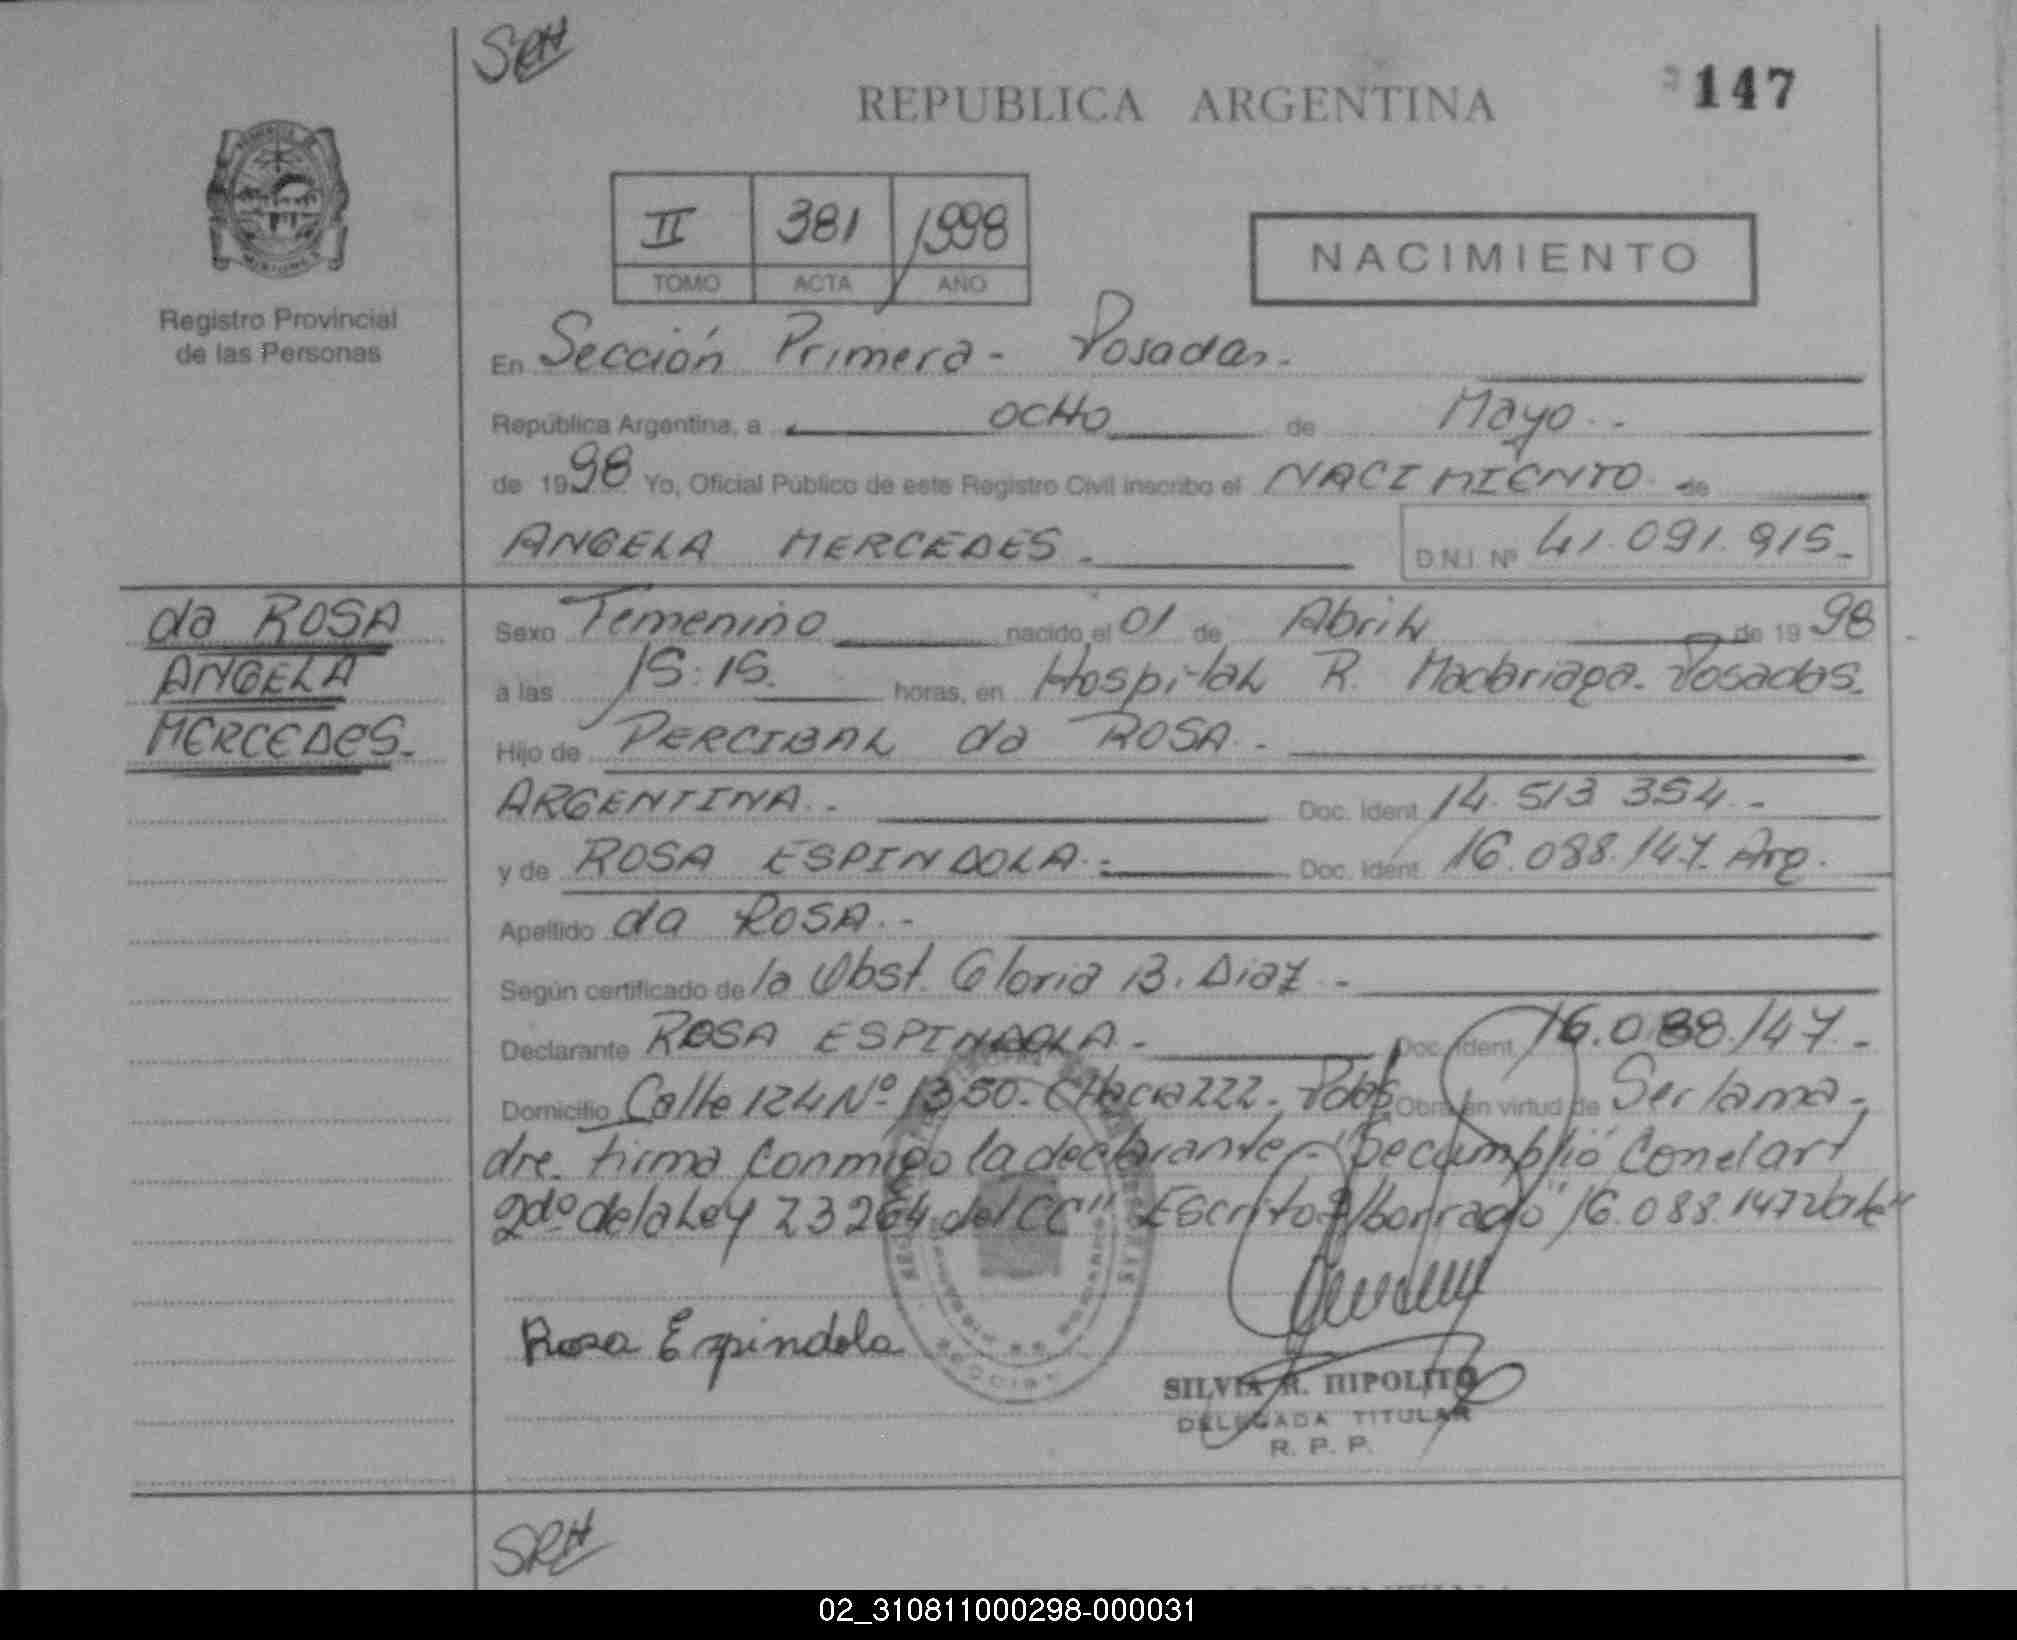 SRH
REPUBLICA ARGENTINA
147
II 381 1998
TOMO ACTA AÑO
NACIMIENTO
Registro Provincial
de las Personas
En Sección Primera - Posadas.
República Argentina, a OCHO de Mayo.
de 1998 Yo, Oficial Público de este Registro Civil inscribo el NACIMIENTO de
ANGELA MERCEDES D.N.I. Nº 41.091.915
da ROSA
ANGELA
MERCEDES
Sexo Femenino nacido el 01 de Abril de 1998
a las 15:15 horas, en Hospital R. Madariaga. Posadas.
Hijo de PERCIBAL da ROSA
ARGENTINA Doc. Ident. 14.513 354
y de ROSA ESPINDOLA Doc. Ident. 16.088.147 Arg.
Apellido da ROSA
Según certificado de la Obst. Gloria B. Diaz
Declarante ROSA ESPINDOLA Doc. Ident. 16.088.147
Domicilio Calle 124 Nº 1350. CHacra 222. Pdas Obra en virtud de Ser la ma-
dre. firma conmigo la declarante "Se cumplió con el art
2do de la Ley 23264 del CC" Escrito s/borrado "16.088.147 vale"
Rosa Espindola
SILVIA R. HIPOLITO
DELEGADA TITULAR
R. P. P.
SRH
02_310811000298-000031